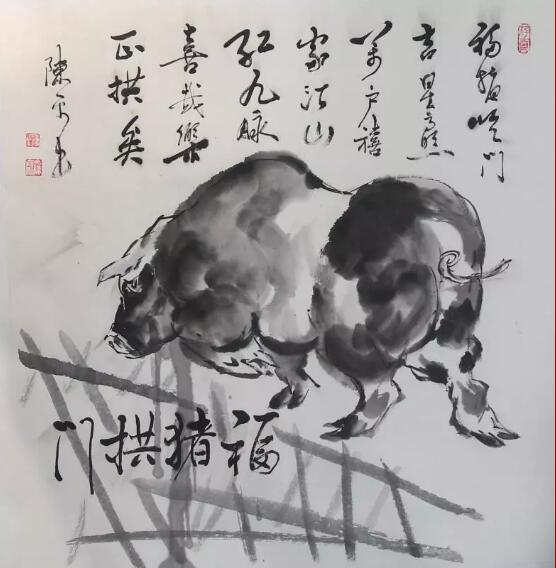 福猪临门
吉星高照
萬户禧
家江山
红九脉
喜哉樂
正拱矣
陳
福猪拱门